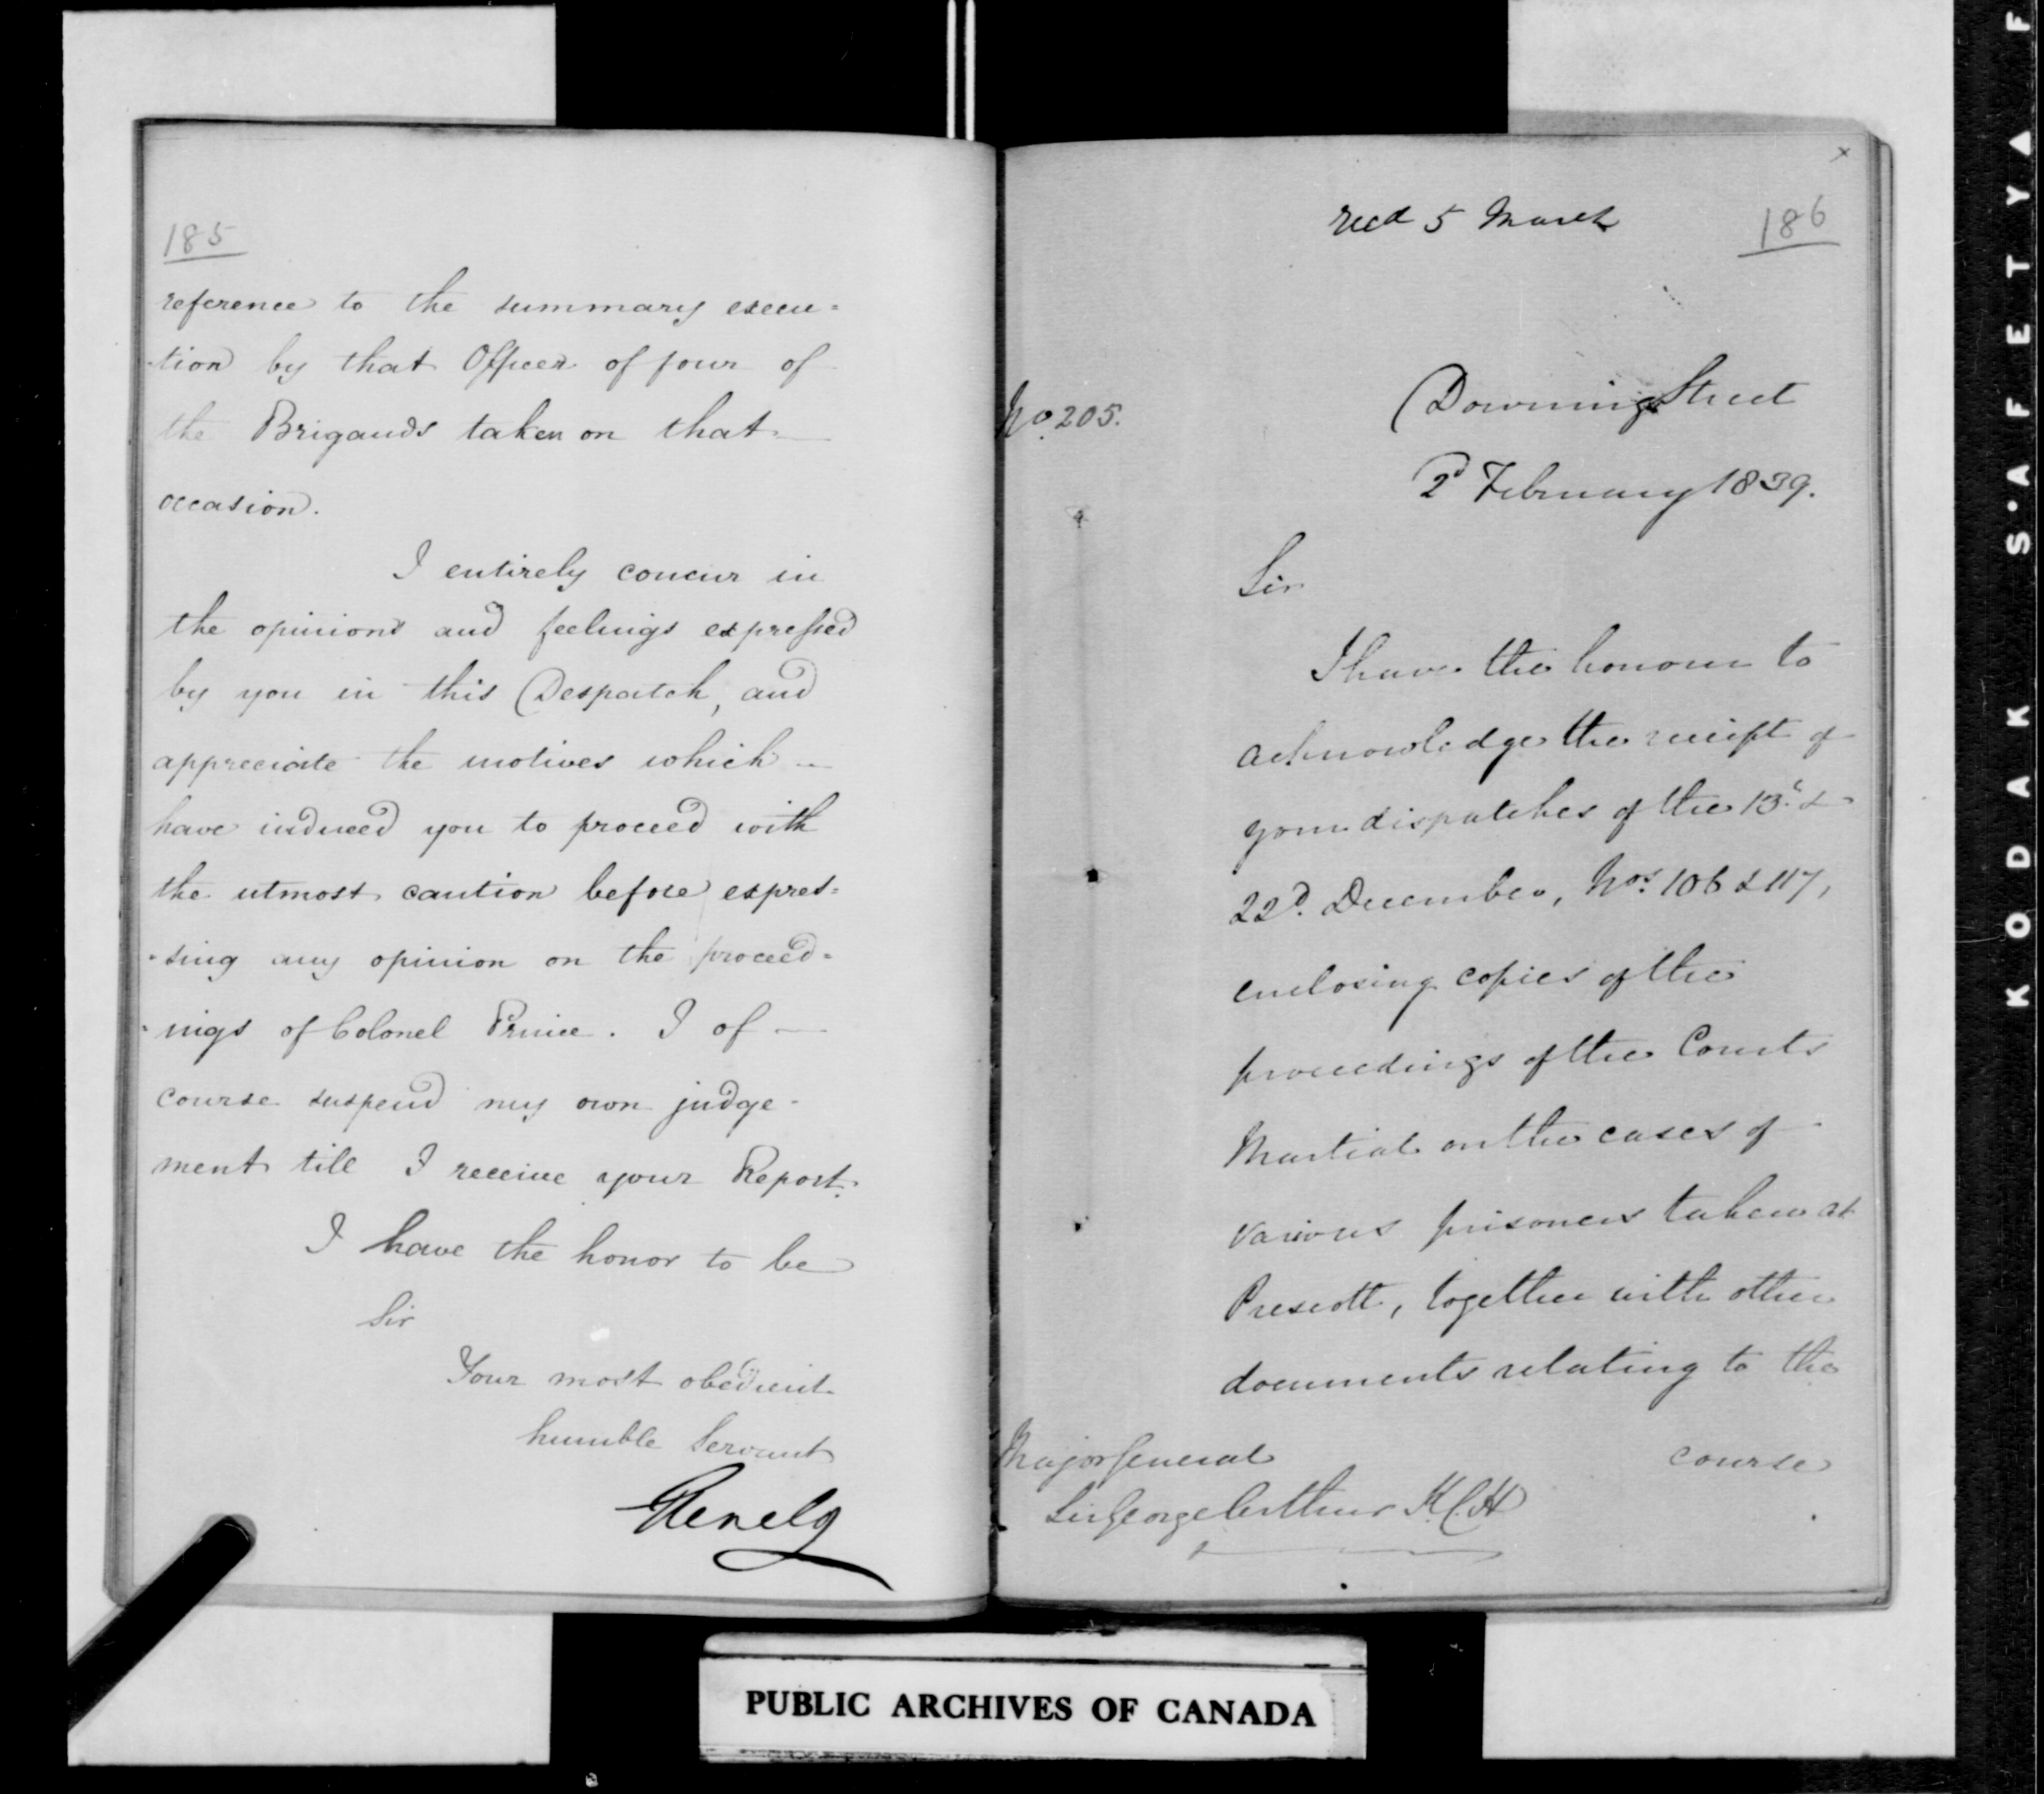 185
reference to the summary execu=
-tion by that Officer of four of
the Brigands taken on that
occasion.
I entirely concur in
the opinions and feelings expressed
by you in this Despatch, and
appreciate the motives which
have induced you to proceed with
the utmost caution before expres=
=sing any opinion on the proceed=
=ings of Colonel Prince. I of
course suspend my own judge-
ment till I receive your Report.
I have the honor to be
Sir
Your most obedient
humble Servant
Glenelg
x
recd 5 March
186
No. 205.
Downing Street
2d February 1839.
Sir
I have the honour to
acknowledge the receipt of
your dispatches of the 13t. &
22d. December, Nos. 106 & 117,
enclosing copies of the
proceedings of the Courts
Martial on the cases of
various prisoners taken at
Prescott, together with other
documents relating to the
course
Major General
Sir George Arthur K.C.H
PUBLIC ARCHIVES OF CANADA
KODAK S'AFETY F